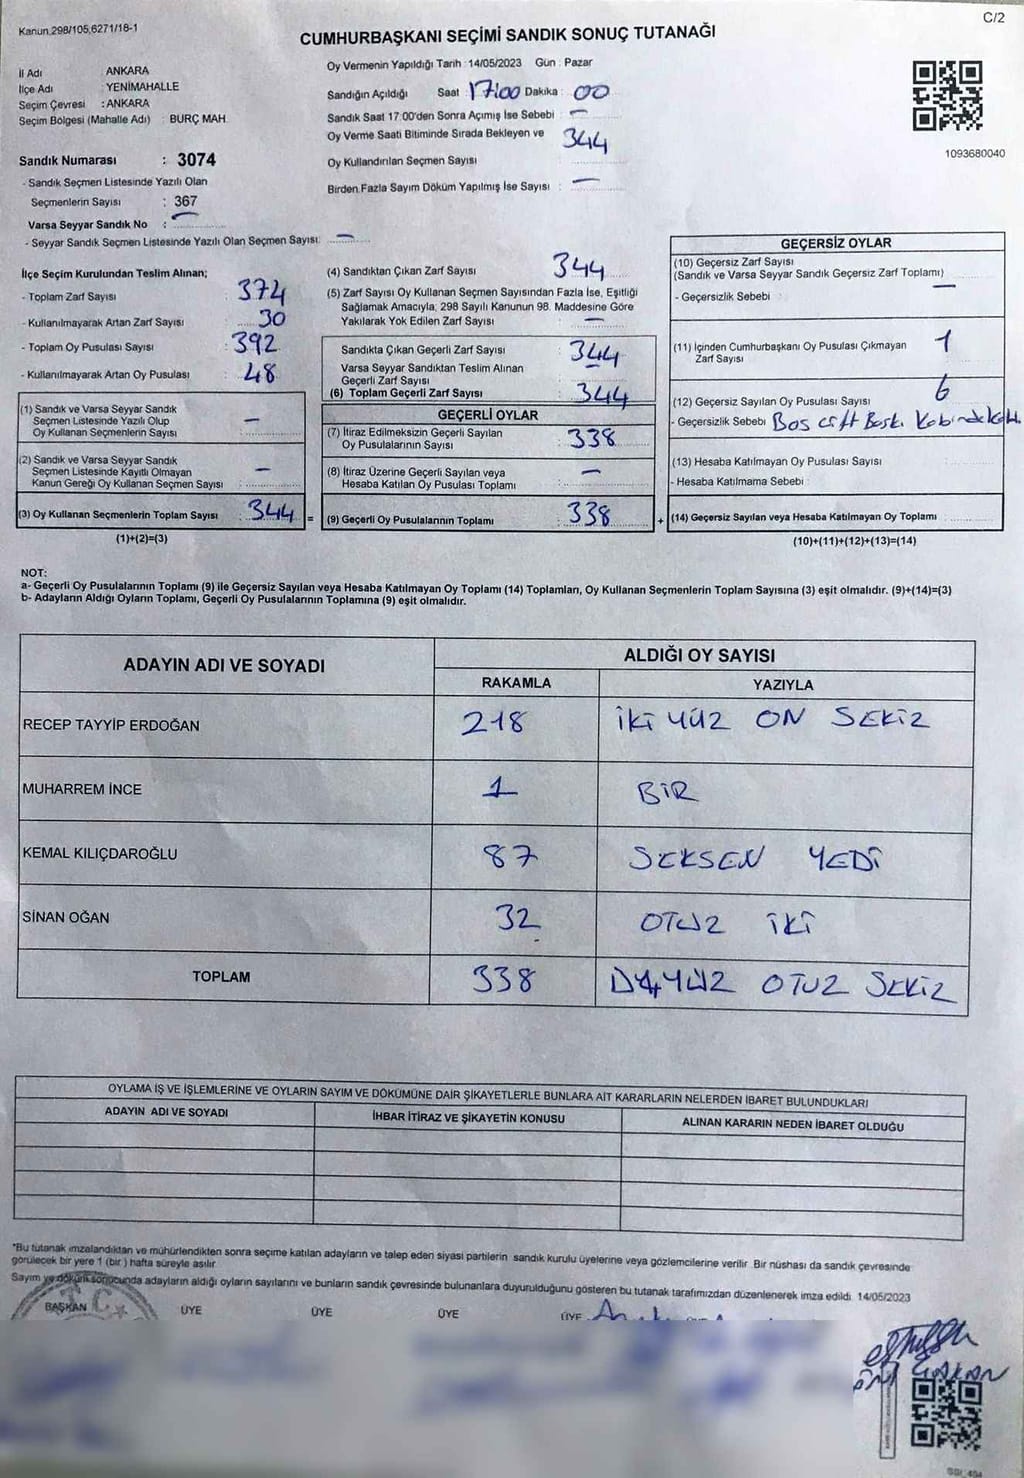 C/2
Kanun 298/105,6271/18-1
CUMHURBAŞKANI SEÇİMİ SANDIK SONUÇ TUTANAĞI
İl Adı ANKARA
İlçe Adı : YENİMAHALLE
Seçim Çevresi : ANKARA
Seçim Bölgesi (Mahalle Adı) : BURÇ MAH.
Sandık Numarası : 3074
- Sandık Seçmen Listesinde Yazılı Olan
Seçmenlerin Sayısı : 367
Varsa Seyyar Sandık No : -
- Seyyar Sandık Seçmen Listesinde Yazılı Olan Seçmen Sayısı: -
Oy Vermenin Yapıldığı Tarih : 14/05/2023 Gün : Pazar
Sandığın Açıldığı Saat : 17:00 Dakika : 00
Sandık Saat 17:00'den Sonra Açımış İse Sebebi : -
Oy Verme Saati Bitiminde Sırada Bekleyen ve 344
Oy Kullandırılan Seçmen Sayısı
Birden Fazla Sayım Döküm Yapılmış İse Sayısı : -
1093680040
İlçe Seçim Kurulundan Teslim Alınan;
- Toplam Zarf Sayısı : 374
- Kullanılmayarak Artan Zarf Sayısı : 30
- Toplam Oy Pusulası Sayısı : 392
- Kullanılmayarak Artan Oy Pusulası : 48
(1) Sandık ve Varsa Seyyar Sandık
Seçmen Listesinde Yazılı Olup
Oy Kullanan Seçmenlerin Sayısı : -
(2) Sandık ve Varsa Seyyar Sandık
Seçmen Listesinde Kayıtlı Olmayan
Kanun Gereği Oy Kullanan Seçmen Sayısı : -
(3) Oy Kullanan Seçmenlerin Toplam Sayısı : 344 =
(1)+(2)=(3)
(4) Sandıktan Çıkan Zarf Sayısı 344
(5) Zarf Sayısı Oy Kullanan Seçmen Sayısından Fazla İse, Eşitliği
Sağlamak Amacıyla, 298 Sayılı Kanunun 98. Maddesine Göre
Yakılarak Yok Edilen Zarf Sayısı : -
Sandıkta Çıkan Geçerli Zarf Sayısı : 344
Varsa Seyyar Sandıktan Teslim Alınan
Geçerli Zarf Sayısı : -
(6) Toplam Geçerli Zarf Sayısı : 344
GEÇERLİ OYLAR
(7) İtiraz Edilmeksizin Geçerli Sayılan
Oy Pusulalarının Sayısı : 338
(8) İtiraz Üzerine Geçerli Sayılan veya
Hesaba Katılan Oy Pusulası Toplamı : -
(9) Geçerli Oy Pusulalarının Toplamı : 338 +
GEÇERSİZ OYLAR
(10) Geçersiz Zarf Sayısı
(Sandık ve Varsa Seyyar Sandık Geçersiz Zarf Toplamı) -
- Geçersizlik Sebebi :
(11) İçinden Cumhurbaşkanı Oy Pusulası Çıkmayan 1
Zarf Sayısı
(12) Geçersiz Sayılan Oy Pusulası Sayısı 6
- Geçersizlik Sebebi Boş çift Baskı
(13) Hesaba Katılmayan Oy Pusulası Sayısı
- Hesaba Katılmama Sebebi :
(14) Geçersiz Sayılan veya Hesaba Katılmayan Oy Toplamı :
(10)+(11)+(12)+(13)=(14)
NOT:
a- Geçerli Oy Pusulalarının Toplamı (9) ile Geçersiz Sayılan veya Hesaba Katılmayan Oy Toplamı (14) Toplamları, Oy Kullanan Seçmenlerin Toplam Sayısına (3) eşit olmalıdır. (9)+(14)=(3)
b- Adayların Aldığı Oyların Toplamı, Geçerli Oy Pusulalarının Toplamına (9) eşit olmalıdır.
ADAYIN ADI VE SOYADI
ALDIĞI OY SAYISI
RAKAMLA YAZIYLA
RECEP TAYYİP ERDOĞAN 218 İKİ YÜZ ON SEKİZ
MUHARREM İNCE 1 BİR
KEMAL KILIÇDAROĞLU 87 SEKSEN YEDİ
SİNAN OĞAN 32 OTUZ İKİ
TOPLAM 338 OTUZ SEKİZ
OYLAMA İŞ VE İŞLEMLERİNE VE OYLARIN SAYIM VE DÖKÜMÜNE DAİR ŞİKAYETLERLE BUNLARA AİT KARARLARIN NELERDEN İBARET BULUNDUKLARI
ADAYIN ADI VE SOYADI İHBAR İTİRAZ VE ŞİKAYETİN KONUSU ALINAN KARARIN NEDEN İBARET OLDUĞU
*Bu tutanak imzalandıktan ve mühürlendikten sonra seçime katılan adayların ve talep eden siyasi partilerin sandık kurulu üyelerine veya gözlemcilerine verilir. Bir nüshası da sandık çevresinde
görülecek bir yere 1 (bir) hafta süreyle asılır.
Sayım ve döküm sonucunda adayların aldığı oyların sayılarını ve bunların sandık çevresinde bulunanlara duyurulduğunu gösteren bu tutanak tarafımızdan düzenlenerek imza edildi. 14/05/2023
BAŞKAN ÜYE ÜYE ÜYE ÜYE
T.C.